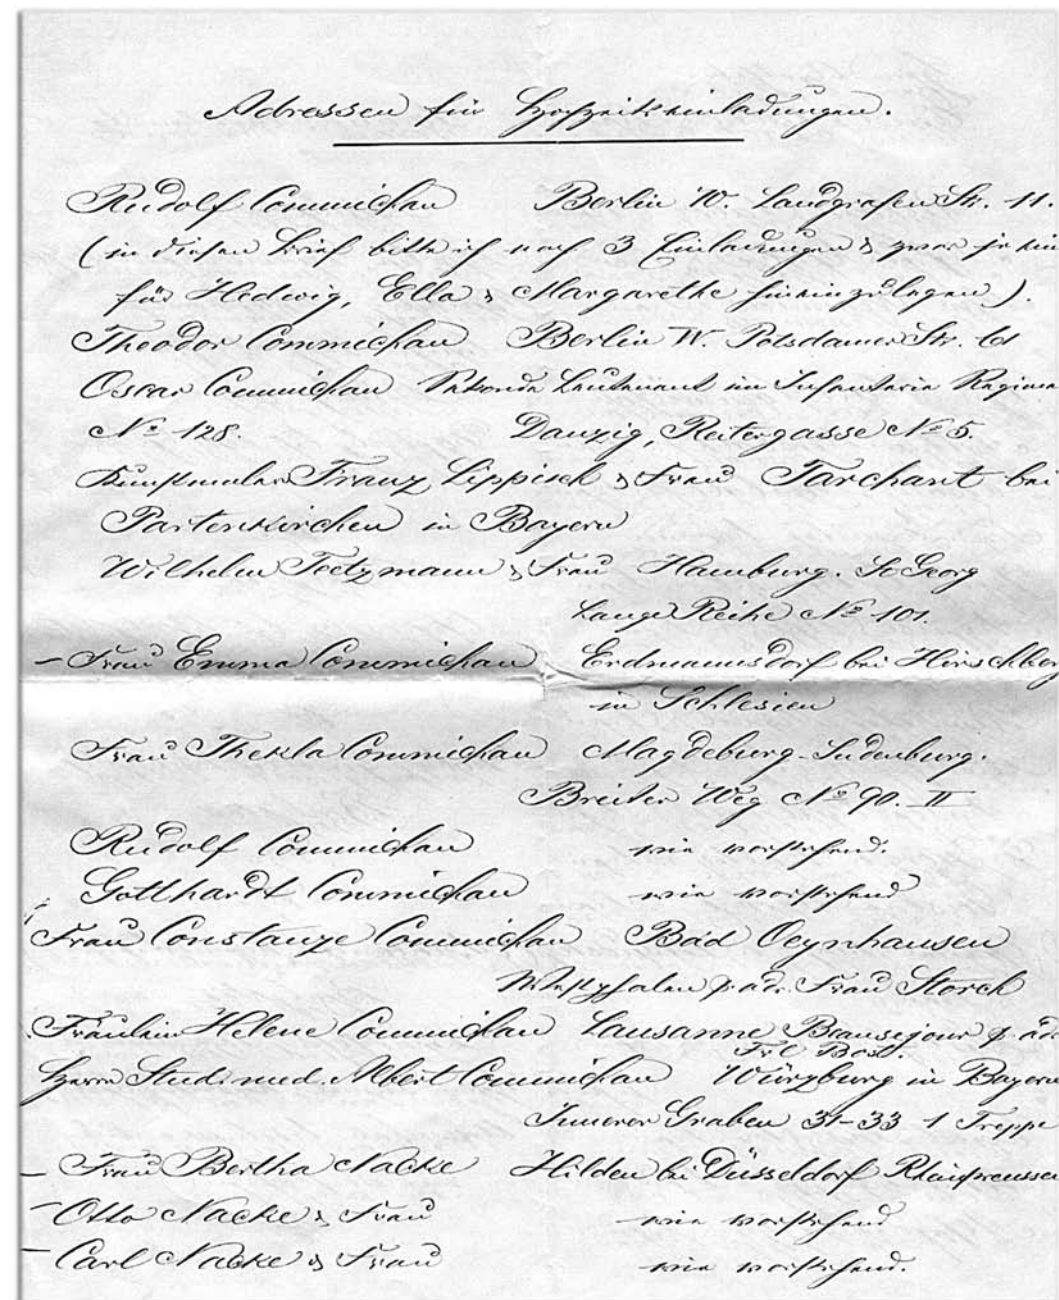 Adressen für Hochzeitseinladungen.
Rudolf Commichau Berlin W. Landgrafen Str. 11.
(in diesen Brief bitte ich noch 3 Einladungen & zwar je ein
für Hedwig, Ella & Margarethe hineinzulegen.)
Theodor Commichau Berlin W. Potsdamer Str. 61
Oscar Commichau Sekonde Leutenant im Infanterie Regime
No 128. Danzig, Reitergasse No 5.
Kunstmaler Franz Lippisch & Frau Farchant bei
Partenkirchen in Bayern
Wilhelm Teetzmann & Frau Hamburg. St Georg
Lange Reihe No 101.
– Frau Emma Commichau Erdmannsdorf bei Hirschberg
in Schlesien
Frau Thekla Commichau Magdeburg-Sudenburg.
Breiter Weg No 90. II
Rudolf Commichau wie vorstehend.
Gotthardt Commichau wie vorstehend
Frau Constanze Commichau Bad Oeynhausen
Westphalen p. adr. Frau Storch
Fräulein Helene Commichau Lausanne Beausejour p. adr
Frl Bost.
Herrn Stud. med. Albert Commichau Würzburg in Bayern
Innerer Graben 31-33 1 Treppe
– Frau Bertha Nacke Hilden bei Düsseldorf Rheinpreussen
– Otto Nacke & Frau wie vorstehend
– Carl Nacke & Frau wie vorstehend.